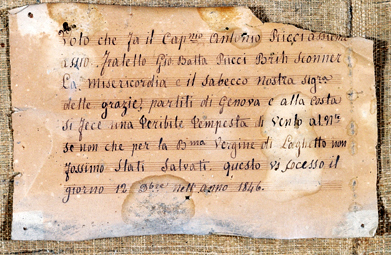 Voto che fa il Cap.no Antonio Ricci assieme
assio. fratello Gio Batta Ricci Borih Sconner
La Misericordia e il Sabecco nostra sigra
delle grazie, partiti di Genova e alla Costa
si fece una teribile tempesta di vento al
se non che per la Bma Vergine di Laghetto non
fossimo Stati Salvati, questo vi socesso il
giorno 12 Obre nell'anno 1846.